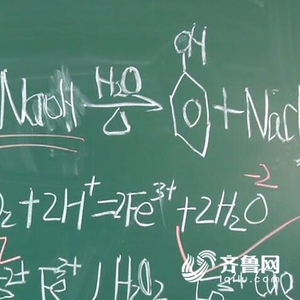 NaOH H₂O △ OH + NaC
O₂ + 2H⁺ = 2Fe³⁺ + 2H₂O -2
2
3+ Fe³⁺ / H₂O₂
齐鲁网
iqilu.com